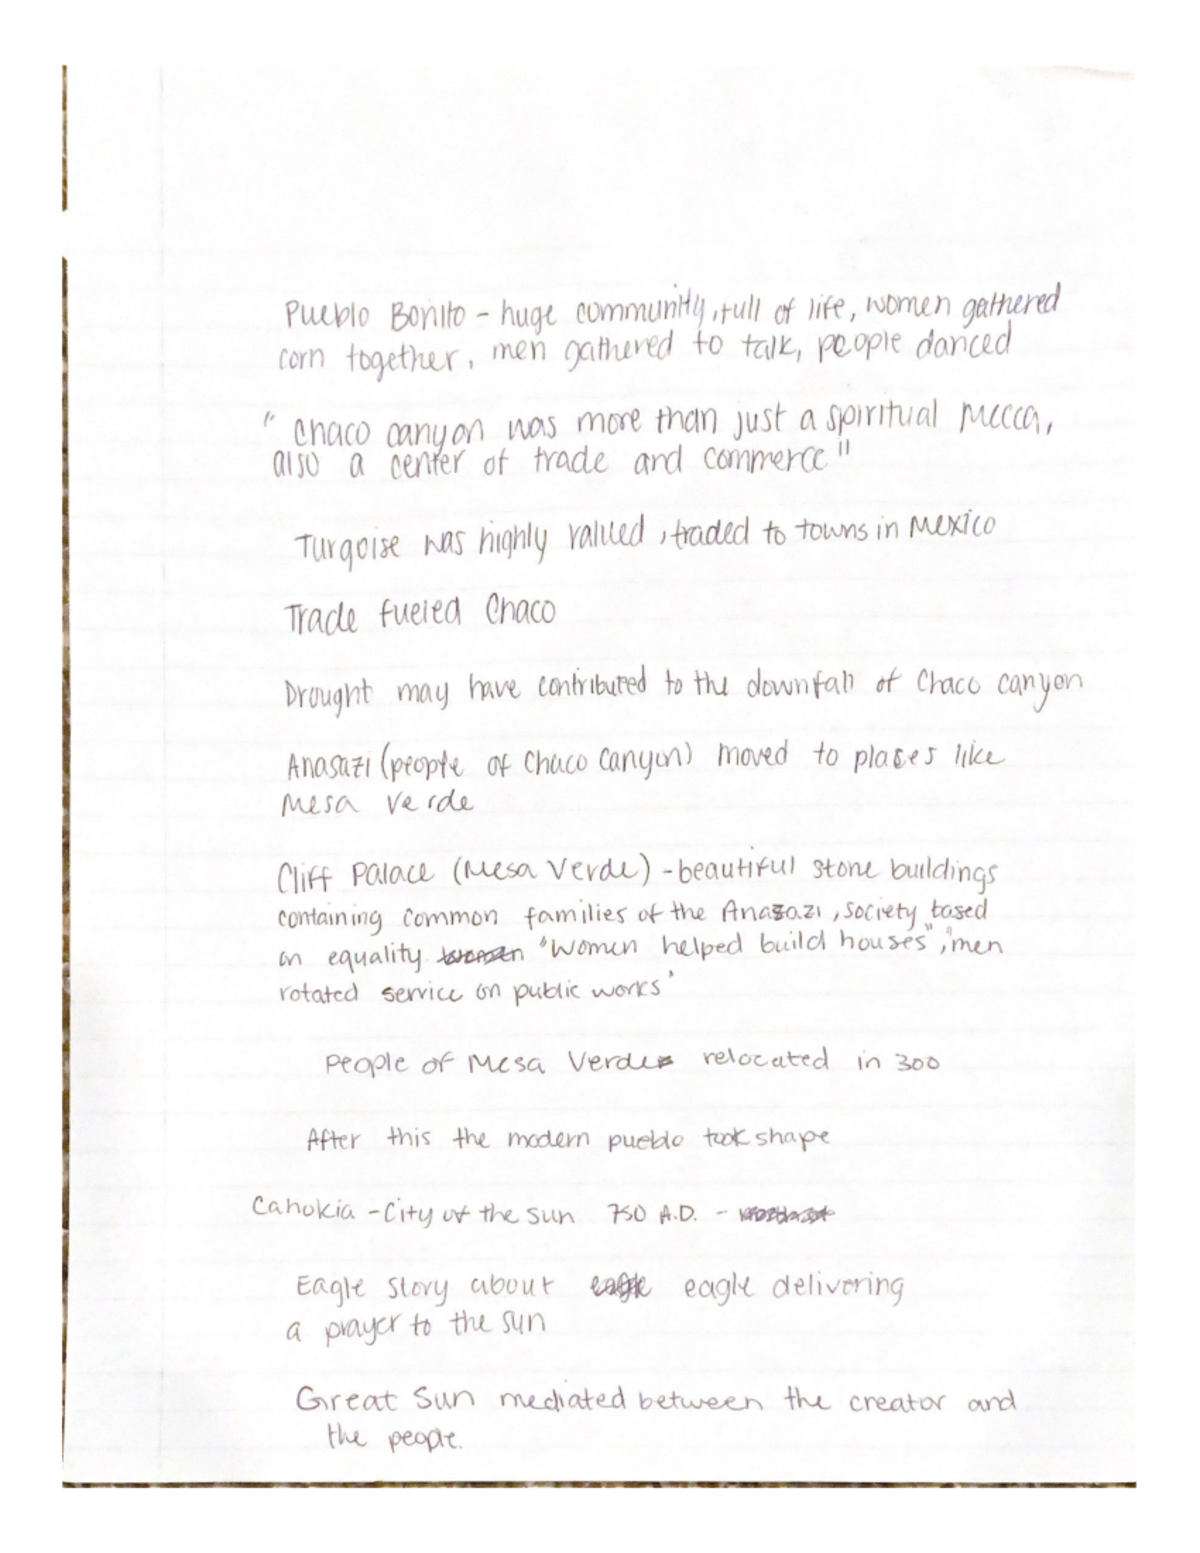 Pueblo Bonito - huge community, full of life, women gathered
corn together, men gathered to talk, people danced
" Chaco canyon was more than just a spiritual Mecca,
also a center of trade and commerce "
Turqoise was highly valued, traded to towns in Mexico
Trade fueled Chaco
Drought may have contributed to the downfall of Chaco canyon
Anasazi (people of Chaco Canyon) moved to places like
Mesa Verde
Cliff Palace (Mesa Verde) - beautiful stone buildings
containing common families of the Anasazi, society based
on equality "Women helped build houses", "men
rotated service on public works"
People of Mesa Verde relocated in 300
After this the modern pueblo took shape
Cahokia - City of the sun 750 A.D. -
Eagle Story about eagle delivering
a prayer to the sun
Great Sun mediated between the creator and
the people.